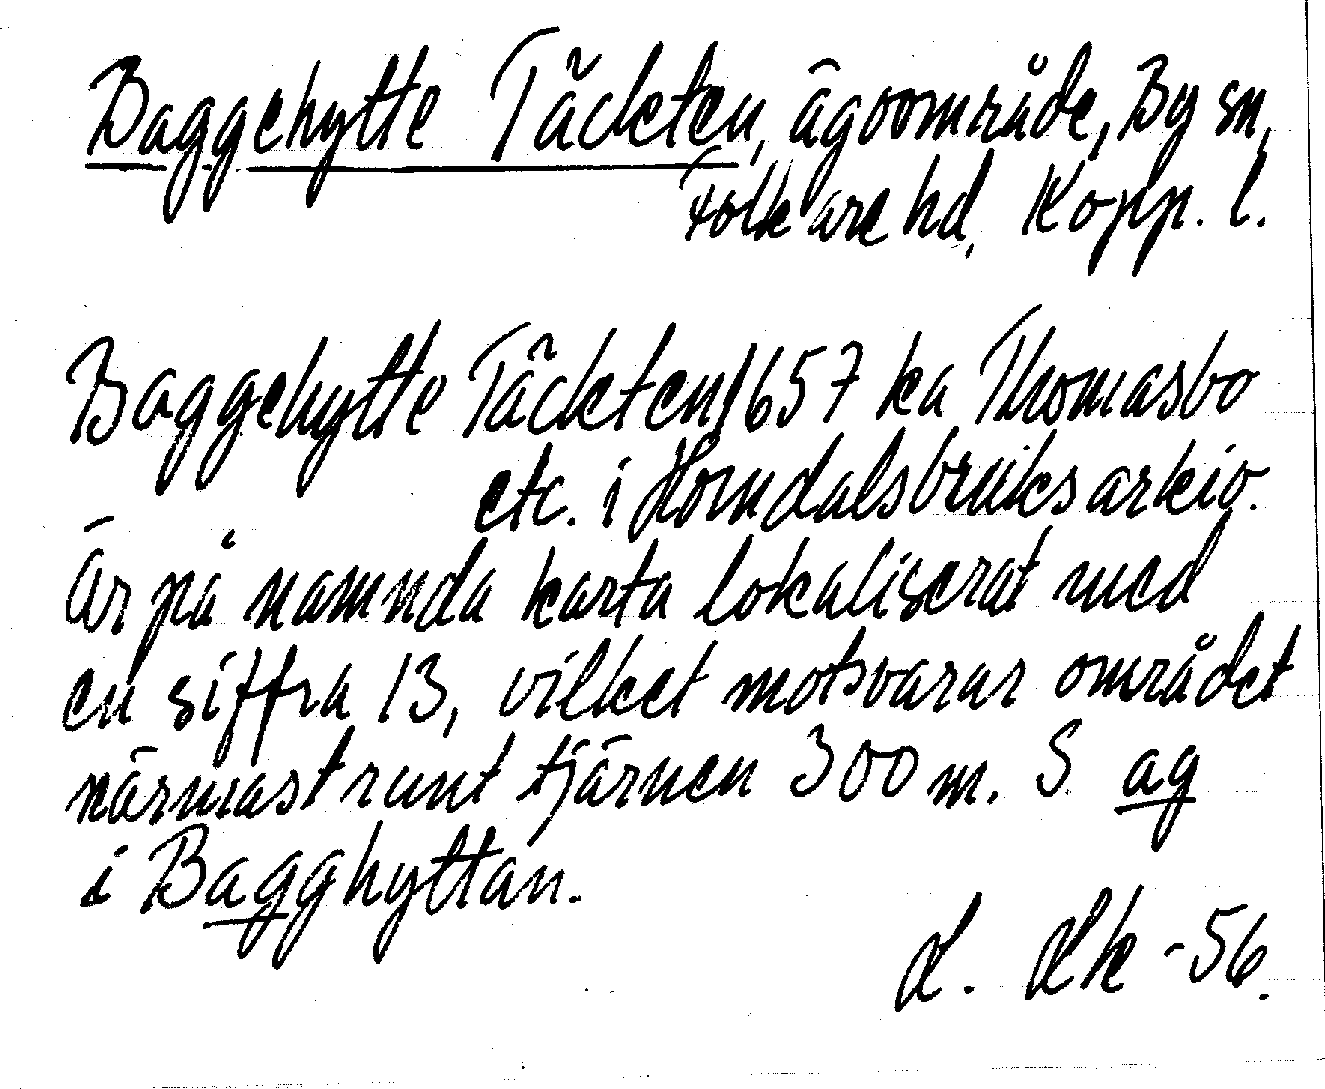 Baggehytte Täckten, ägoområde, By sn,
Folkare hd, Kopp. l.
Baggehytte Täckten 1657 ka Thomasbo
etc. i Horndalsbruks arkiv.
Är på namnda karta lokaliserat med
en siffra 13, vilket motsvarar området
närmast runt tjärnen 300 m. S ag
i Bagghyttan.
-56.